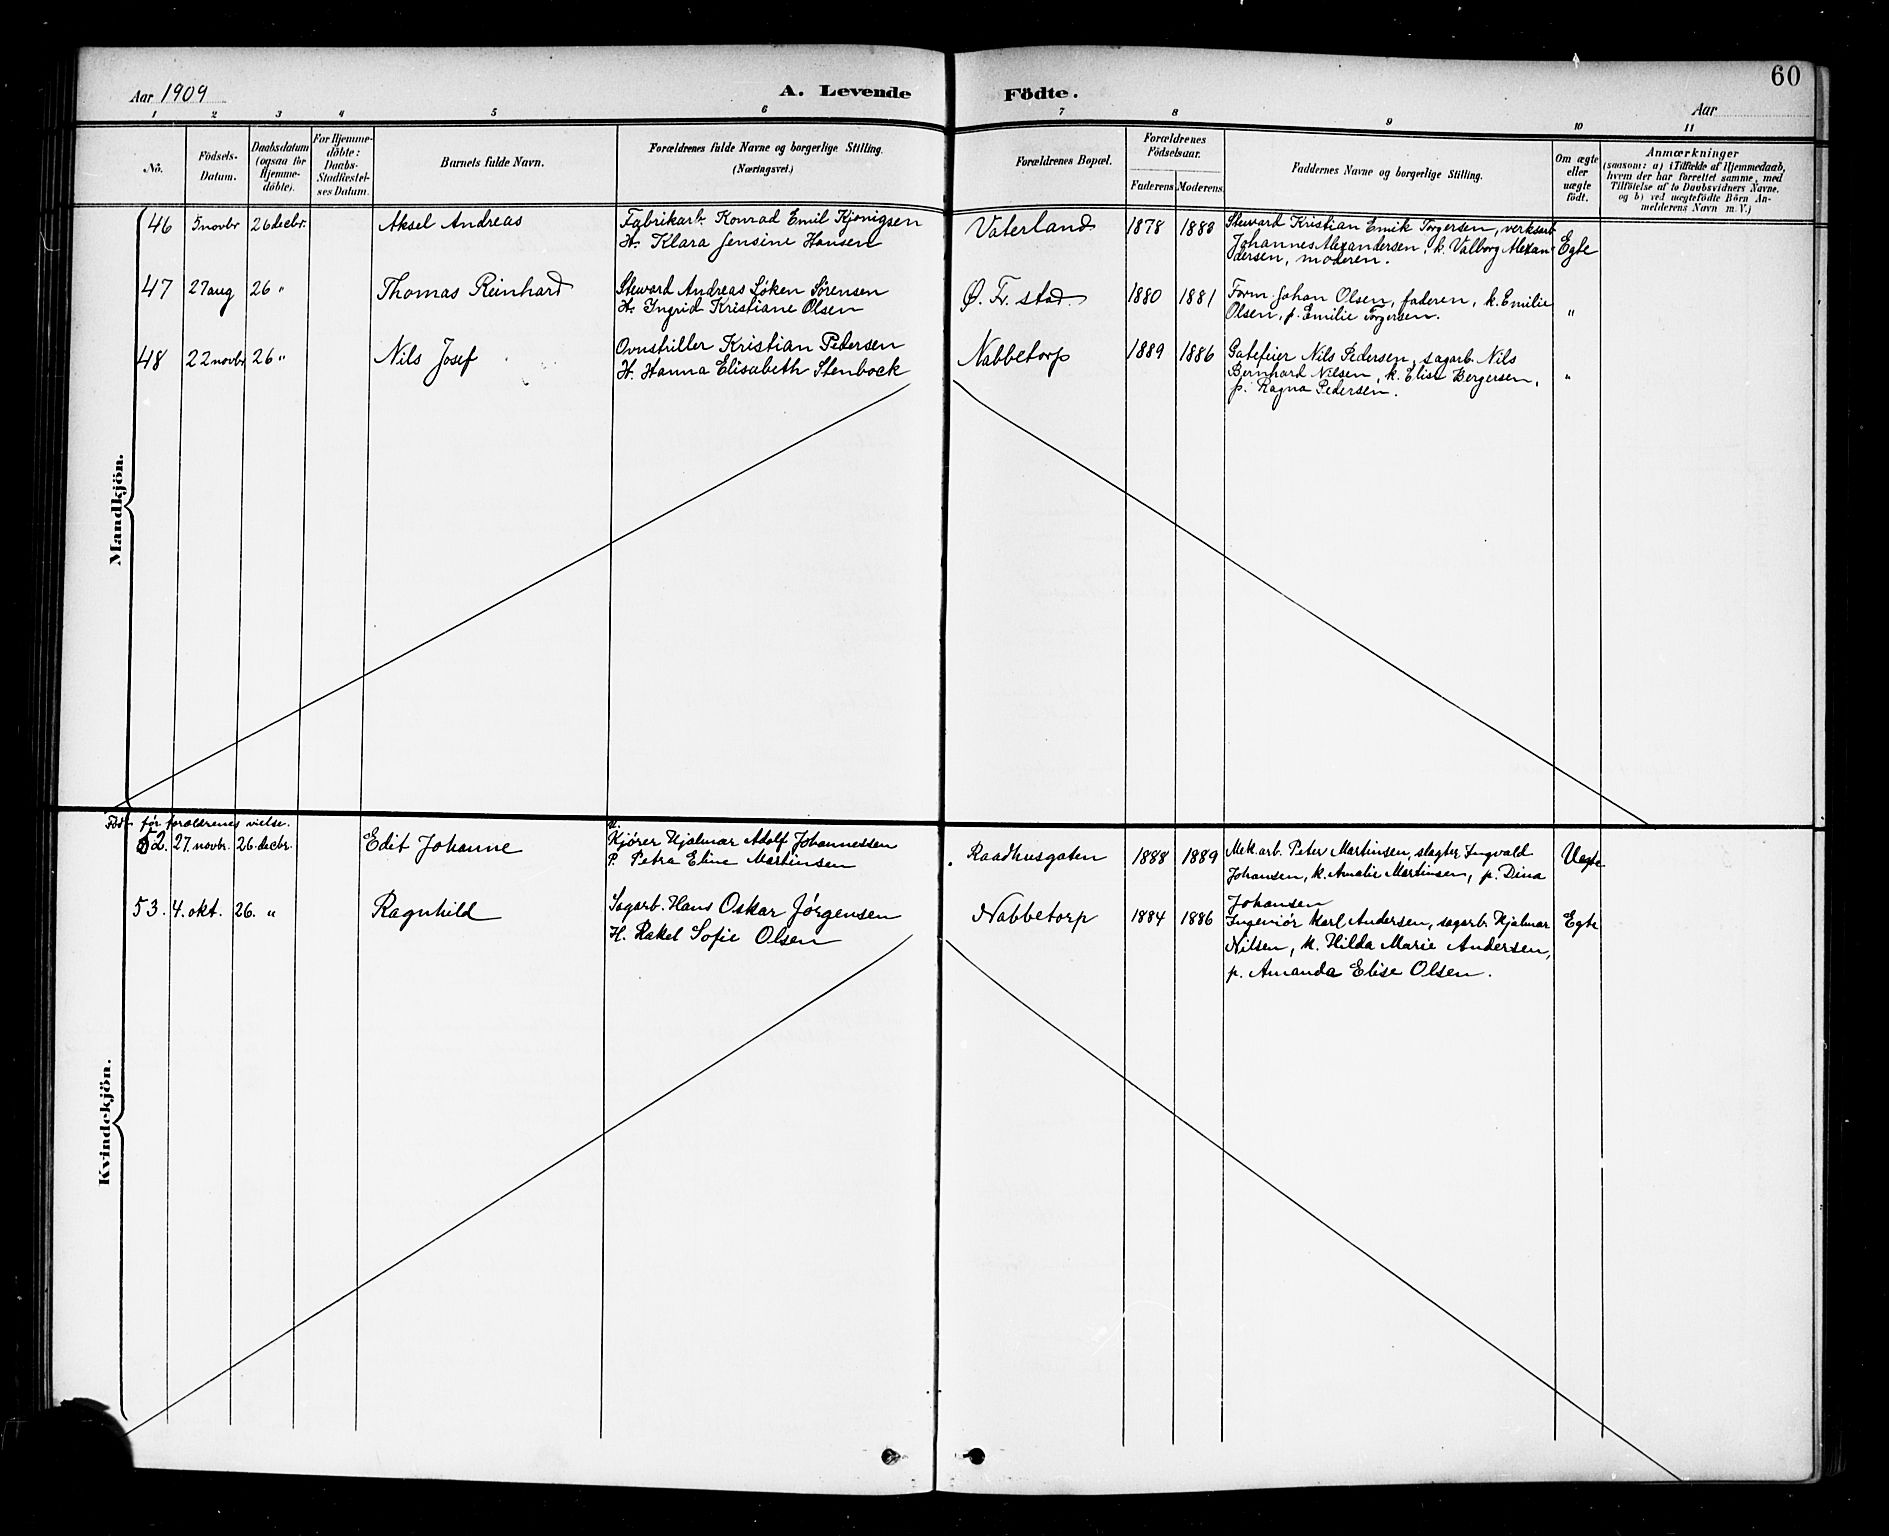 60
Aar 1909
A. Levende
Födte.
Aar
1 2 3 4 5 6 7 8 9 10 11
No.
Födsels-
Datum.
Daabsdatum
(ogsaa for
Hjemme-
döbte).
For Hjemme-
döbte:
Daabs-
Stadfæstel-
ses Datum.
Barnets fulde Navn.
Forældrenes fulde Navne og borgerlige Stilling.
(Næringsvei.)
Forældrenes Bopæl.
Forældrenes
Födselsaar.
Faderens Moderens
Faddernes Navne og borgerlige Stilling.
Om ægte
eller
uægte
födt.
Anmærkninger
(saasom: a) i Tilfælde af Hjemmedaab,
hvem der har forrettet samme, med
Tilföielse af to Daabsvidners Navne.
og b) ved uægtefödte Börn An-
melderens Navn m. V.)
Mandkjön.
46 5 novbr 26 decbr. Aksel Andreas
Fabrikarb. Konrad Emil Kjonigsen
H. Klara Jensine Hansen
Vaterland 1878 1883
Steward Kristian Emik Torgersen, verksarb
Johannes Alexandersen, k. Valborg Alexan-
dersen, moderen.
Egte
47 27 aug 26 " Thomas Reinhard
Steward Andreas Løken Sørensen
H. Ingrid Kristiane Olsen
Ø. Fr. stad. 1880 1881
Form. Johan Olsen, faderen, k. Emilie
Olsen, p. Emilie Torgersen.
"
48 22 novbr 26 " Nils Josef
Ovnstiller Kristian Pedersen
H. Hanna Elisabeth Stenbock
Nabbetorp 1889 1886
Gatefeier Nils Pedersen, sagarb. Nils
Bernhard Nilsen, k. Elise Bergersen,
p. Ragna Pedersen.
"
Kvindekjön.
Født før forældrenes vielse.
52. 27. novbr. 26. decbr. Edit Johanne
U.
Kjører Hjalmar Adolf Johannessen
P. Petra Eline Martinsen
Raadhusgaten 1888 1889
Mek arb. Peter Martinsen, slagter Ingvald
Johansen, k. Amalie Martinsen, p. Dina
Johansen
Uegte
53. 4. okt. 26. " Ragnhild
Sagarb. Hans Oskar Jørgensen
H. Rakel Sofie Olsen
Nabbetorp 1884 1886
Ingeniør Karl Andersen, sagarb. Hjalmar
Nilsen, k. Hilda Marie Andersen,
p. Amanda Elise Olsen.
Egte